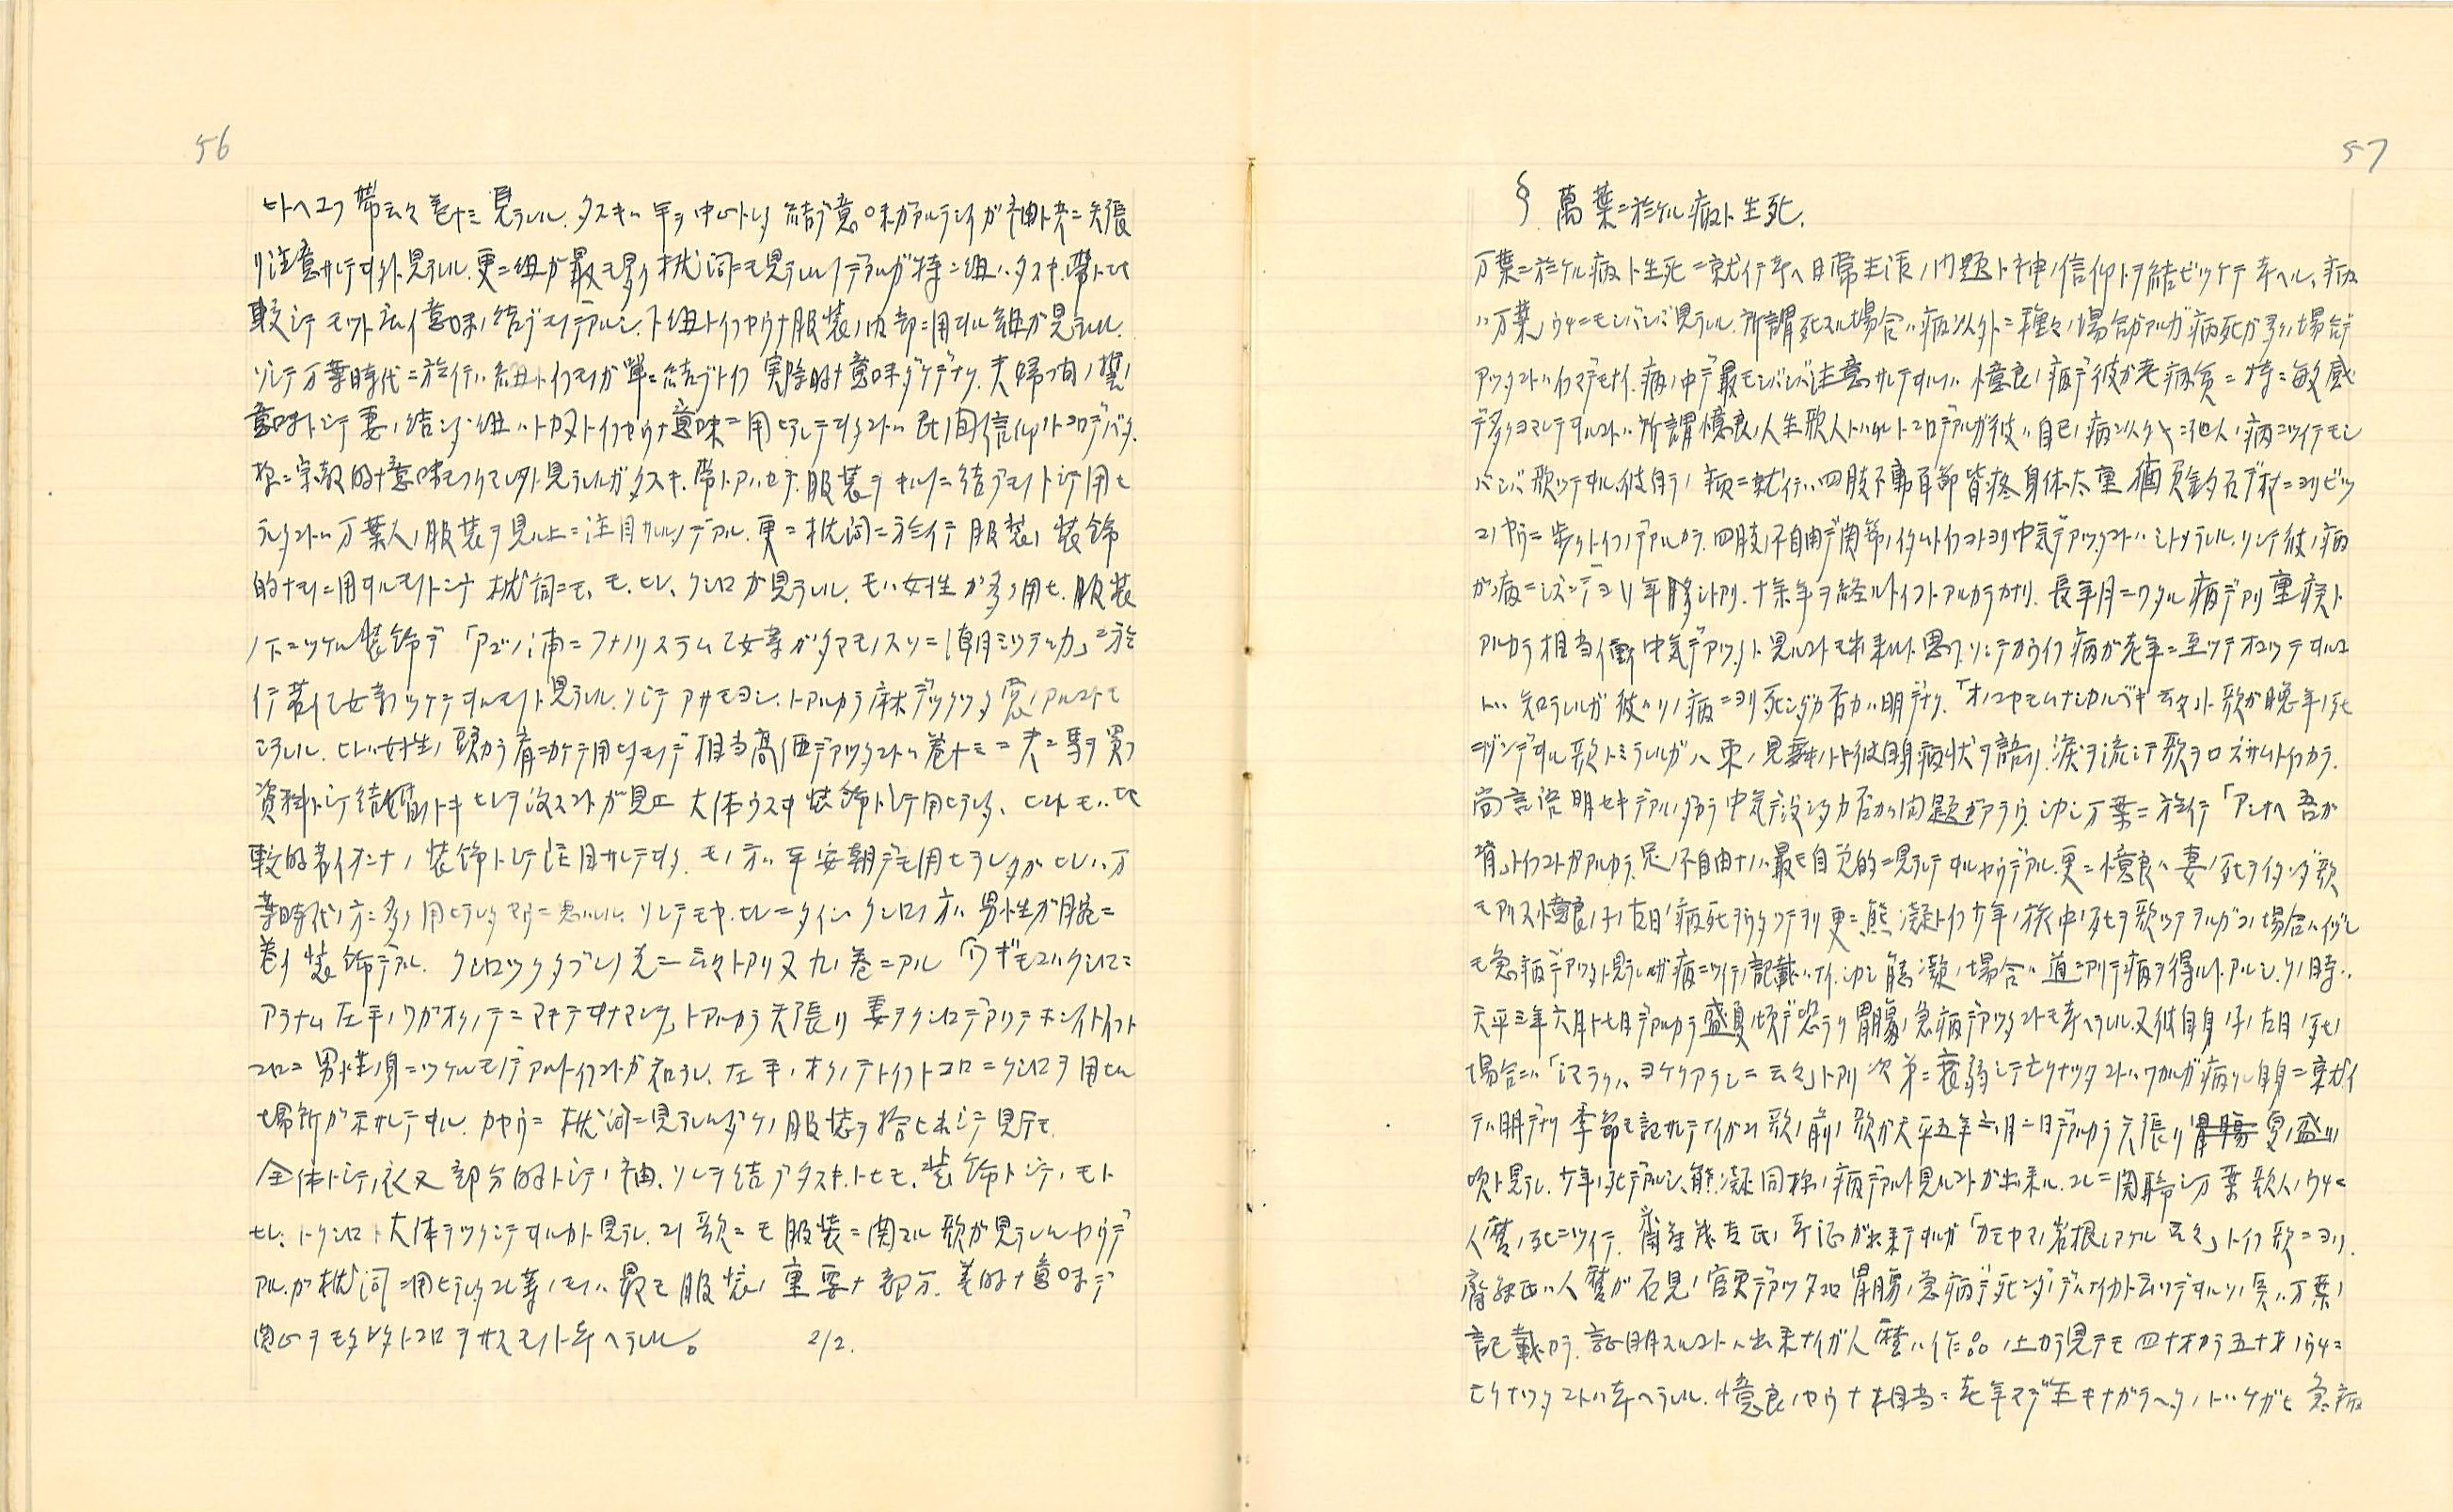 56
ヒトヘユフ 帯云々 巻十三ニ 見ラレル. タスキハ 年ヲ 中心トシタ 結ブ意味ガアルラシイガ 神ト共ニ 矢張
リ注意サレテヰタト見ラレル. 更ニ紐ガ最モ多ク 枕詞ニモ見ラレルノデアルガ 特ニ紐ハ タスキ.帯ト比
較シテ モット広イ意味ノ結ブモノデアルシ. 下紐トイフヤウナ服装ノ内部ニ用ヰル紐ガ見ラレル.
ソシテ万葉時代ニ於イテハ 紐トイフモノガ単ニ結ブトイフ 実際的ナ意味ダケデナク. 夫婦ノ間ノ契ノ
意味トシテ 妻ノ結ンダ紐ハトカヌトイフヤウナ意味ニ用ヒラレテヰタコトハ 民間信仰ノトコロデノベタ.
様ニ宗教的ナ意味モツケテヰタト見ラレルガ タスキ. 帯トアハセテ. 服装ヲ キルノニ結ブモノトシテ用ヒ
ラレタコトハ 万葉人ノ服装ヲ見ル上ニ注目サルルノデアル. 更ニ 枕詞ニ於イテ 服装ノ装飾
的ナモノニ用ヰルモノトシテ 枕詞ニモ、モ. ヒレ、クシロ ガ見ラレル. モハ女性ガ多ク用ヒ. 服装
ノ下ニツケル装飾デ 「アゴノ浦ニフナノリスラム乙女等ガタマモノスソニ潮ミツラムカ」ニ於
イテ若イ乙女等ガツケテヰルモノト見ラレル. ソシテ アサモヨシ. トアルカラ 麻デツクッタ裳ノアルコトモ
ミラレル. ヒレハ女性ノ 頭カラ肩ニカケテ用ヒタモノデ 相当高価デアッタコトハ 巻十三ニ 夫ニ馬ヲ買フ
資料トシテ 結婚ノトキ ヒレヲ渡スコトガ見エ 大体ウスキ 装飾トシテ用ヒラレタ、ヒレト モハ 比
較的若イオンナノ 装飾トシテ注目サレテヰタ. モノ方ハ 平安朝デモ用ヒラレタガ ヒレハ万
葉時代ノ方ニ多ク用ヒラレタヤウニ思ハレル. ソシテモヤ.ヒレニタイシ クシロノ方ハ 男性ガ腕ニ
巻ク装飾デアル. クシロツクタブシノ先ニ 云々トアリ又九ノ巻ニアル 「ワギモコハクシロニ
アラナム 左手ノワガオクノテニマキテヰナマシヲ」トアルカラ 矢張リ 妻ヲクシロデアリテホシイトイフト
コロニ 男性ノ身ニツケルモノデアルトイフコトガ知ラレ. 左手.オクノテトイフトコロニクシロヲ用ヒル
場所ガ示サレテヰル. カヤウニ 枕詞ニ見ラレルダケノ服装ヲ拾ヒ出シテ 見テモ.
全体トシテノ衣又 部分的トシテノ袖. ソレヲ結ブタスキ.トヒモ. 装飾トシテノモト
ヒレ. トクシロト大体ヲツクシテヰルカト見ラレ. コノ歌ニモ服装ニ関スル歌ガ見ラレルヤウデ
アル.ガ枕詞ニ用ヒラレタコレ等ノモノハ 最モ服装ノ重要ナ部分. 美的ナ意味デ
関心ヲモタレタトコロヲサスモノト考ヘラレル。 2/2.
57
§ 萬葉ニ於ケル病ト生死.
万葉ニ於ケル病ト生死ニ就イテ考ヘ日常生活ノ問題ト神ノ信仰トヲ結ビツケテ考ヘル. 病
ハ万葉ノウチニモシバシバ見ラレル. 所謂死スル場合ハ病以外ニ種々ノ場合ガアルガ病死ガ多イ場合デ
アッタコトハイフマデモナイ. 病ノ中デ最モシバシバ注意サレテヰルノハ 憶良ノ病デ彼ガ老病貧ニ特ニ敏感
デ多クヨマレテヰルコトハ 所謂憶良ノ人生歌人トイハルルトコロデアルガ彼ハ 自己ノ病以外ニ他人ノ病ニツイテモシ
バシバ歌ッテヰル.彼自ラノ病ニ就イテハ 四肢不動百節皆疼身体太重 猶負鈞石デ杖ニヨリビッ
コノヤウニ歩クトイフノデアルカラ. 四肢ノ不自由デ関節ノイタムトイフコトヨリ中気デアッタコトハ ミトメラレル. ソシテ彼ノ病
ガ病ニシズンデヨリ年月ヲ 十余年ヲ経ルトイフコトアルカラカナリ. 長年月ニワタル病デアリ 重病ト
アルカラ 相当ヒドイ中気デアッタト見ルコトモ出来ルト思フ.ソシテカウイフ病ガ老年ニ至ッテオコッテヰルコ
トハ 知ラレルガ 彼ハソノ病ニヨリ死ンダカ否カハ明デナク. 「オノコヤモムナシカルベキ云々ノ歌ガ晩年ノ死
ニゾンデヰル歌トミラレルガ八束ノ見舞ノトキ彼自身病状ヲ語リ. 涙ヲ流シテ歌ヲ口ズサムトイフカラ.
尚言語明セキデアルノダカラ 中気デ没シタカ否カハ問題ガアラウ. 沖シ万葉ニ於イテ 「アシナヘ 吾ガ
背」トイフコトガアルカラ. 足ノ不自由ナノハ最モ自覚的ニ見ラレテヰルヤウデアル. 更ニ憶良ハ妻ノ死ヲイタンダ歌
モアリ又憶良ノ子ノ古日ノ病死ヲウタッテヲリ 更ニ熊凝トイフ少年ノ旅中ノ死ヲ歌ッテヲルガコノ場合ハイヅレ
モ急病デアッタト見ラレルガ病ニツイテノ記載ハナイ. 沖シ熊凝ノ場合ハ 道ニアリテ病ヲ得ルトアルシ. ソノ時ハ
天平三年六月十七日デアルカラ 盛夏ノ頃デ恐ラク胃腸ノ急病デアッタコトモ考ヘラレル. 又彼自身ノ子ノ古日ノ死ノ
場合ニハ 「シマラクハ ヨケクアラシニ 云々」トアリ 次第ニ衰弱シテ亡クナッタコトハワカルガ病ソレ自身ニ就イ
テハ明デナク 季節モ記サレテナイガコノ歌ノ前ノ歌ガ天平五年六月一日デアルカラ 矢張リ 胃腸 夏ノ盛リノ
頃ト見ラレ. 少年ノ死デアルシ、熊凝同様ノ病デアルト見ルコトガ出来ル. コレニ関聯シ万葉歌人ノウチニ
人麿ノ死ニツイテ. 齋藤茂吉氏ノ考証ガ出来テヰルガ 「カモヤマノ岩根シマケル云々」トイフ歌ニヨリ.
齋藤氏ハ人麿ガ石見ノ官吏デアッタコロ 胃腸ノ急病デ死ンダノデハナイカト云ッテヰル. ソノ点ハ万葉ノ
記載カラ. 証明スルコトハ出来ナイガ人麿ハ作品ノ上カラ見テモ 四十才カラ五十才ノウチニ
亡クナッタコトハ考ヘラレル. 憶良ノヤウナ相当ニ老年マデ生キナガラヘタノトハチガヒ 急病